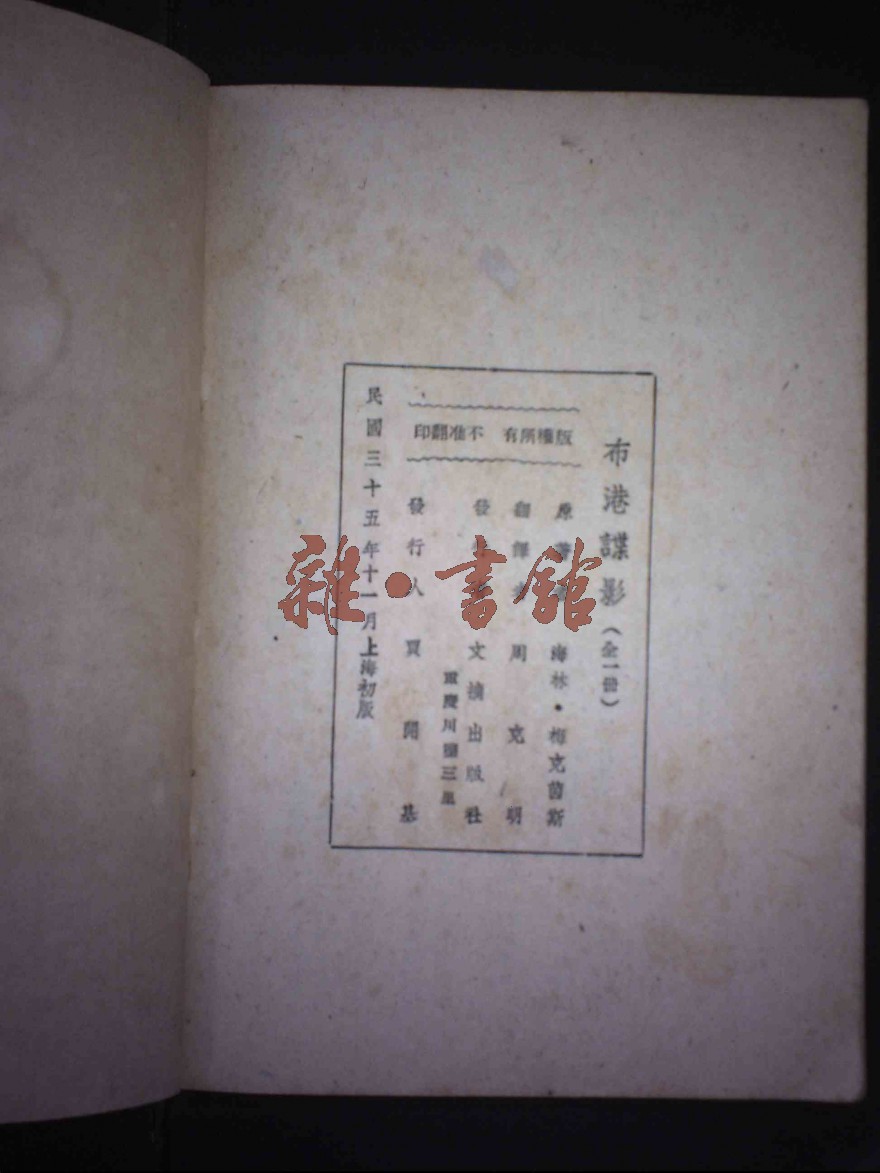 布港諜影（全一冊）
版權所有 不准翻印
原著者 海林·梅克茵斯
翻譯者 周克明
發行者 文摘出版社
重慶川鹽三里
發行人 賈開基
民國三十五年十一月上海初版
雜·書館